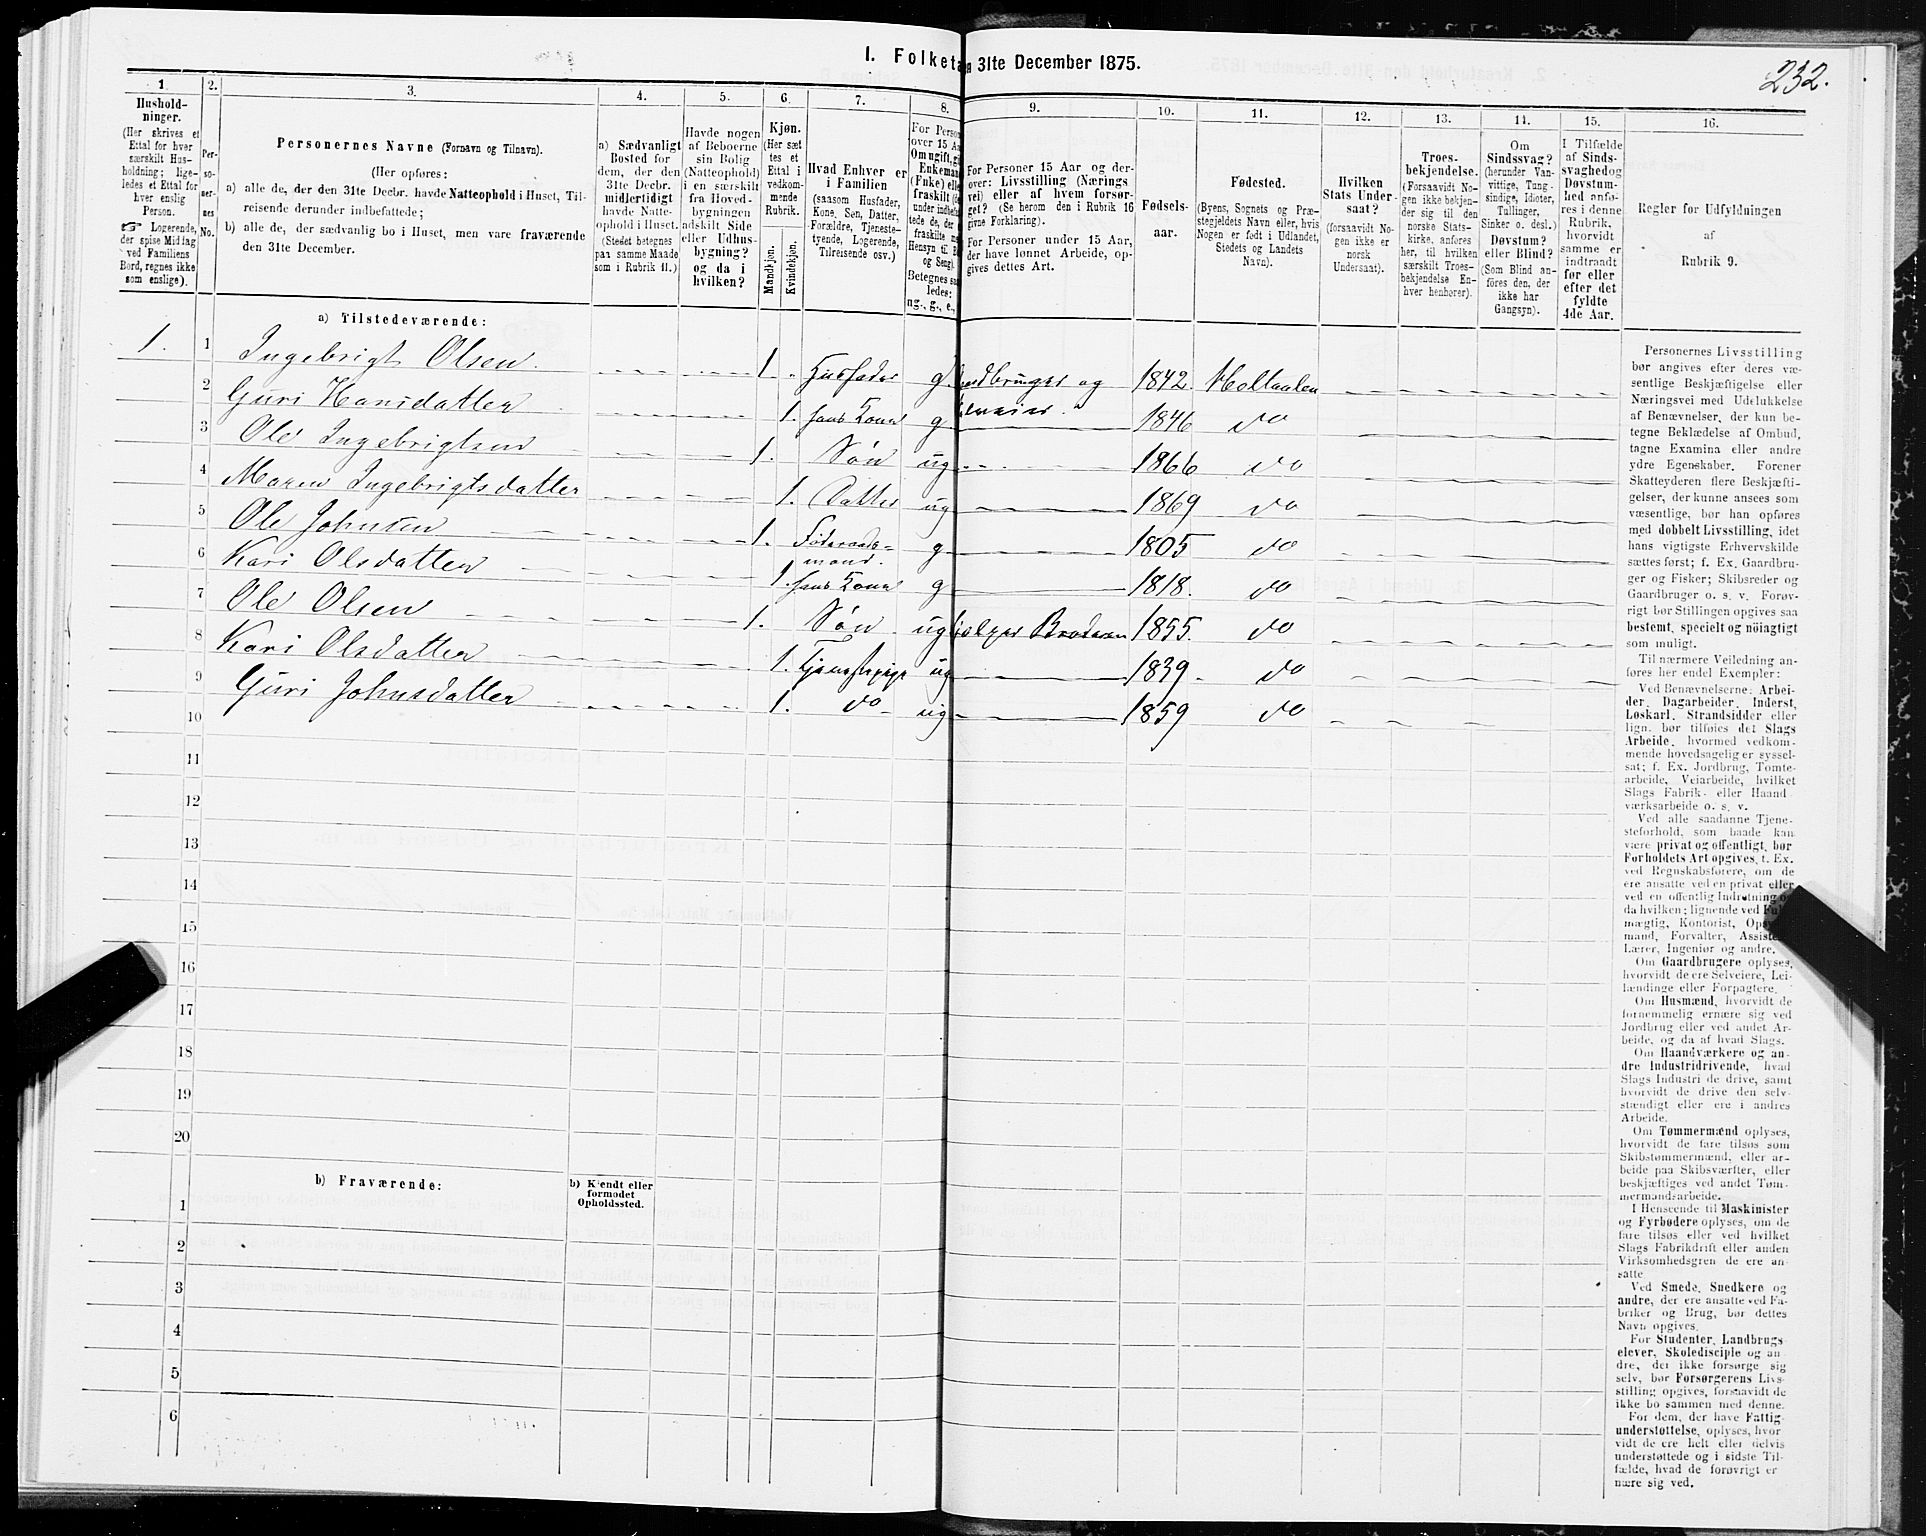 I. Folketa
a 31te December 1875.
232.
1.
2.
3.
4.
5.
6.
7.
8.
9.
10.
11.
12.
13.
14.
15.
16.
Hushold-
ninger.
(Her skrives et
Ettal for hver
særskilt Hus-
holdning; lige-
ledes et Ettal for
hver enslig
Person.
☞ Logerende,
der spise Middag
ved Familiens
Bord, regnes ikke
som enslige).
Per-
so-
ner-
nes
No.
Personernes Navne (Fornavn og Tilnavn).
(Her opføres:
a) alle de, der den 31te Decbr. havde Natteophold i Huset, Til-
reisende derunder indbefattede;
b) alle de, der sædvanlig bo i Huset, men vare fraværende
den 31te December.
a) Sædvanligt
Bosted for
dem, der den
31te Decbr.
midlertidigt
havde Natte-
ophold i Huset.
(Stedet betegnes
paa samme Maade
som i Rubrik 11.)
Havde nogen
af Beboerne
sin Bolig
(Natteophold)
i en særskilt
fra Hoved-
bygningen
adskilt Side
eller Udhus-
bygning?
og da i
hvilken?
Kjøn.
(Her sæt
tes et
Ettal i
vedkom-
mende
Rubrik.
Mandkjøn.
Kvindekjøn.
Hvad Enhver er
i Familien
(saasom Husfader,
Kone, Søn, Datter,
Forældre, Tjeneste-
tyende, Logerende,
Tilreisende osv.)
For Person
over 15 Aa
Om ugift, gi
Enkemand
(Fuke) elle
fraskilt (de
under indbefa
tede de, der
fraskilte m
Hensyn til B
og Seng).
Betegnes saa
ledes:
ug., g., e.,
For Personer 15 Aar og der-
over: Livsstilling (Nærings
vei) eller af hvem forsør-
get? (Se herom den i Rubrik 16
givne Forklaring).
For Personer under 15 Aar,
der have lønnet Arbeide, op-
gives dettes Art.
Fødsels-
aar.
Fødested.
(Byens, Sognets og Præ-
stegjeldets Navn eller, hvis
Nogen er født i Udlandet,
Stedets og Landets
Navn).
Hvilken
Stats Under-
saat?
(forsaavidt No-
gen ikke er
norsk
Undersaat).
Troes-
bekjendelse.
(Forsaavidt No-
gen ikke bekjen-
der sig til den
norske Stats-
kirke, anføres
her, til hvilken
særskilt Troes-
bekjendelse En-
hver henhører).
Om
Sindssvag?
(herunder Van-
vittige, Tung-
sindige, Idioter,
Tullinger,
Sinker o. desl.)
Døvstum?
eller Blind?
(Som Blind an-
føres den, der
ikke har
Gangsyn).
I Tilfælde
af Sinds-
svaghed og
Døvstum-
hed anfø-
res i denne
Rubrik,
hvorvidt
samme er
indtraadt
før eller
efter det
fyldte
4de Aar.
Regler for Udfyldningen
af
Rubrik 9.
a) Tilstedeværende:
1. 1 Ingebrigt Olsen 1. Husfader g. og 1842. Holtaalen
2 Guri Hansdatter 1. hans Kone g 1846 do
3 Ole Ingebrigtsen 1. Søn ug 1866 do
4 Maren Ingebrigtsdatter 1. Datter ug 1869 do
5 Ole Johnsen 1. Føderaads=
mand. g 1805 do
6 Kari Olsdatter 1. hans Kone g 1818. do
7 Ole Olsen 1. Søn ug hjelper Broderen 1855. do
8 Kari Olsdatter 1. Tjenestepige ug 1839 do
9 Guri Johnsdatter 1. do ug 1859 do
10
11
12
13
14
15
16
17
18
19
20
b) Fraværende:
b) Kjendt eller
formodet
Opholdssted.
1
2
3
4
5
6
Personernes Livsstilling
bør angives efter deres væ-
sentlige Beskjæftigelse eller
Næringsvei med Udelukkelse
af Benævnelser, der kun be-
tegne Beklædelse af Ombud,
tagne Examina eller andre
ydre Egenskaber. Forener
Skatteyderen flere Beskjæfti-
gelser, der kunne ansees som
væsentlige, bør han opføres
med dobbelt Livsstilling, idet
hans vigtigste Erhvervskilde
sættes først; f. Ex. Gaardbru-
ger og Fisker; Skibsreder og
Gaardbruger o. s. v. Forøv-
rigt bør Stillingen opgives saa
bestemt, specielt og nøiagtigt
som muligt.
Til nærmere Veiledning an-
føres her endel Exempler:
Ved Benævnelserne: Arbei-
der, Dagarbeider, Inderst,
Løskarl, Strandsidder eller
lign. bør tilføies det Slags
Arbeide, hvormed vedkom-
mende hovedsagelig er syssel-
sat; f. Ex. Jordbrug, Tomte-
arbeide, Veiarbeide, hvilket
Slags Fabrik- eller Haand
værksarbeide o. s. v.
Ved alle saadanne Tjene-
steforhold, som baade kan
være privat og offentligt, bør
Forholdets Art opgives, f. Ex.
ved Regnskabsførere, om de
ere ansatte ved en privat eller
ved en offentlig Indretning o
da hvilken; lignende ved Ful
mægtig, Kontorist, Opsy
mand, Forvalter, Assiste
Lærer, Ingeniør og andre.
Om Gaardbrugere oplyses,
hvorvidt de ere Selveiere, Lei-
lændinge eller Forpagtere.
Om Husmænd, hvorvidt de
fornemmelig ernære sig ved
Jordbrug eller ved andet Ar-
beide, og da af hvad Slags.
Om Haandværkere og an-
dre Industridrivende, hvad
Slags Industri de drive, samt
hvorvidt de drive den selv-
stændigt eller ere i andres
Arbeide.
Om Tømmermænd oplyses,
hvorvidt de fare tilsøs som
Skibstømmermænd, eller ar-
beide paa Skibsværfter, eller
beskjæftiges ved andet Tøm-
mermandsarbeide.
I Henseende til Maskinister
og Fyrbødere oplyses, om de
fare tilsøs eller ved hvilket
Slags Fabrikdrift eller anden
Virksomhedsgren de ere an-
satte
Ved Smede, Snedkere og
andre, der ere ansatte ved Fa-
briker og Brug, bør dettes
Navn opgives.
For Studenter, Landbrugs-
elever, Skoledisciple og an-
dre, der ikke forsørge sig
selv, bør Forsørgerens Livs-
stilling opgives, forsaavidt de
ikke bo sammen med denne.
For dem, der have Fattig-
understøttelse, oplyses, hvor
vidt de ere helt eller delvis
understøttede og i sidste Til-
fælde, hvad de forøvrigt er
nære sig ved.